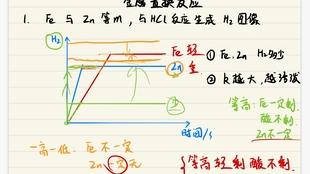 金属置换反应
1. Fe 与 Zn 等m,与HCl反应生成 H₂ 图像
H₂
Fe 轻
Zn
① Fe.Zn H₂多少
② k越大,越活泼
等高:Fe一定剩
酸不剩.
Zn不一定
时间/s
一高一低:Fe不一定
Zn一定无
{等高轻剩酸不剩.